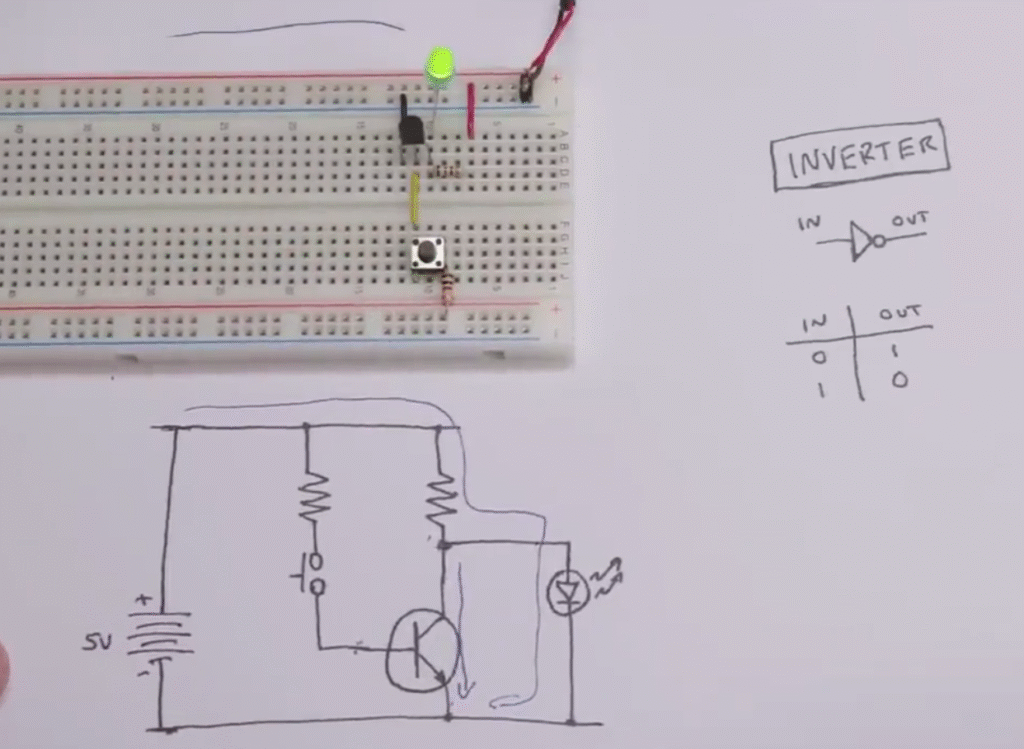 INVERTER
IN OUT
IN OUT
0 1
1 0
+
5V
-
A
B
C
D
E
F
G
H
I
J